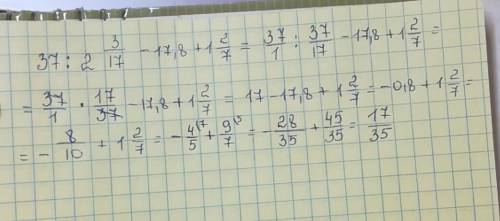 37 : 2 3/17 - 17,8 + 1 2/7 = 37/1 : 37/17 - 17,8 + 1 2/7 =
= 37/1 · 17/37 - 17,8 + 1 2/7 = 17 - 17,8 + 1 2/7 = -0,8 + 1 2/7 =
= - 8/10 + 1 2/7 = - 4/5 \7 + 9/7 \5 = - 28/35 + 45/35 = 17/35